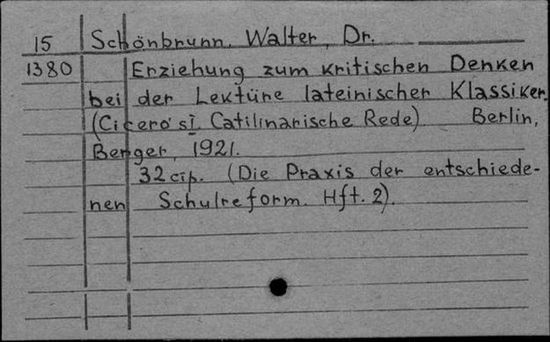 15 Schönbrunn, Walter, Dr.
1380 Erziehung zum kritischen Denken
bei der Lektüre lateinischer Klassiker
(Cicero's I. Catilinarische Rede) Berlin,
Berger, 1921.
32 cip. (Die Praxis der entschiede-
nen Schulreform. Hft. 2).